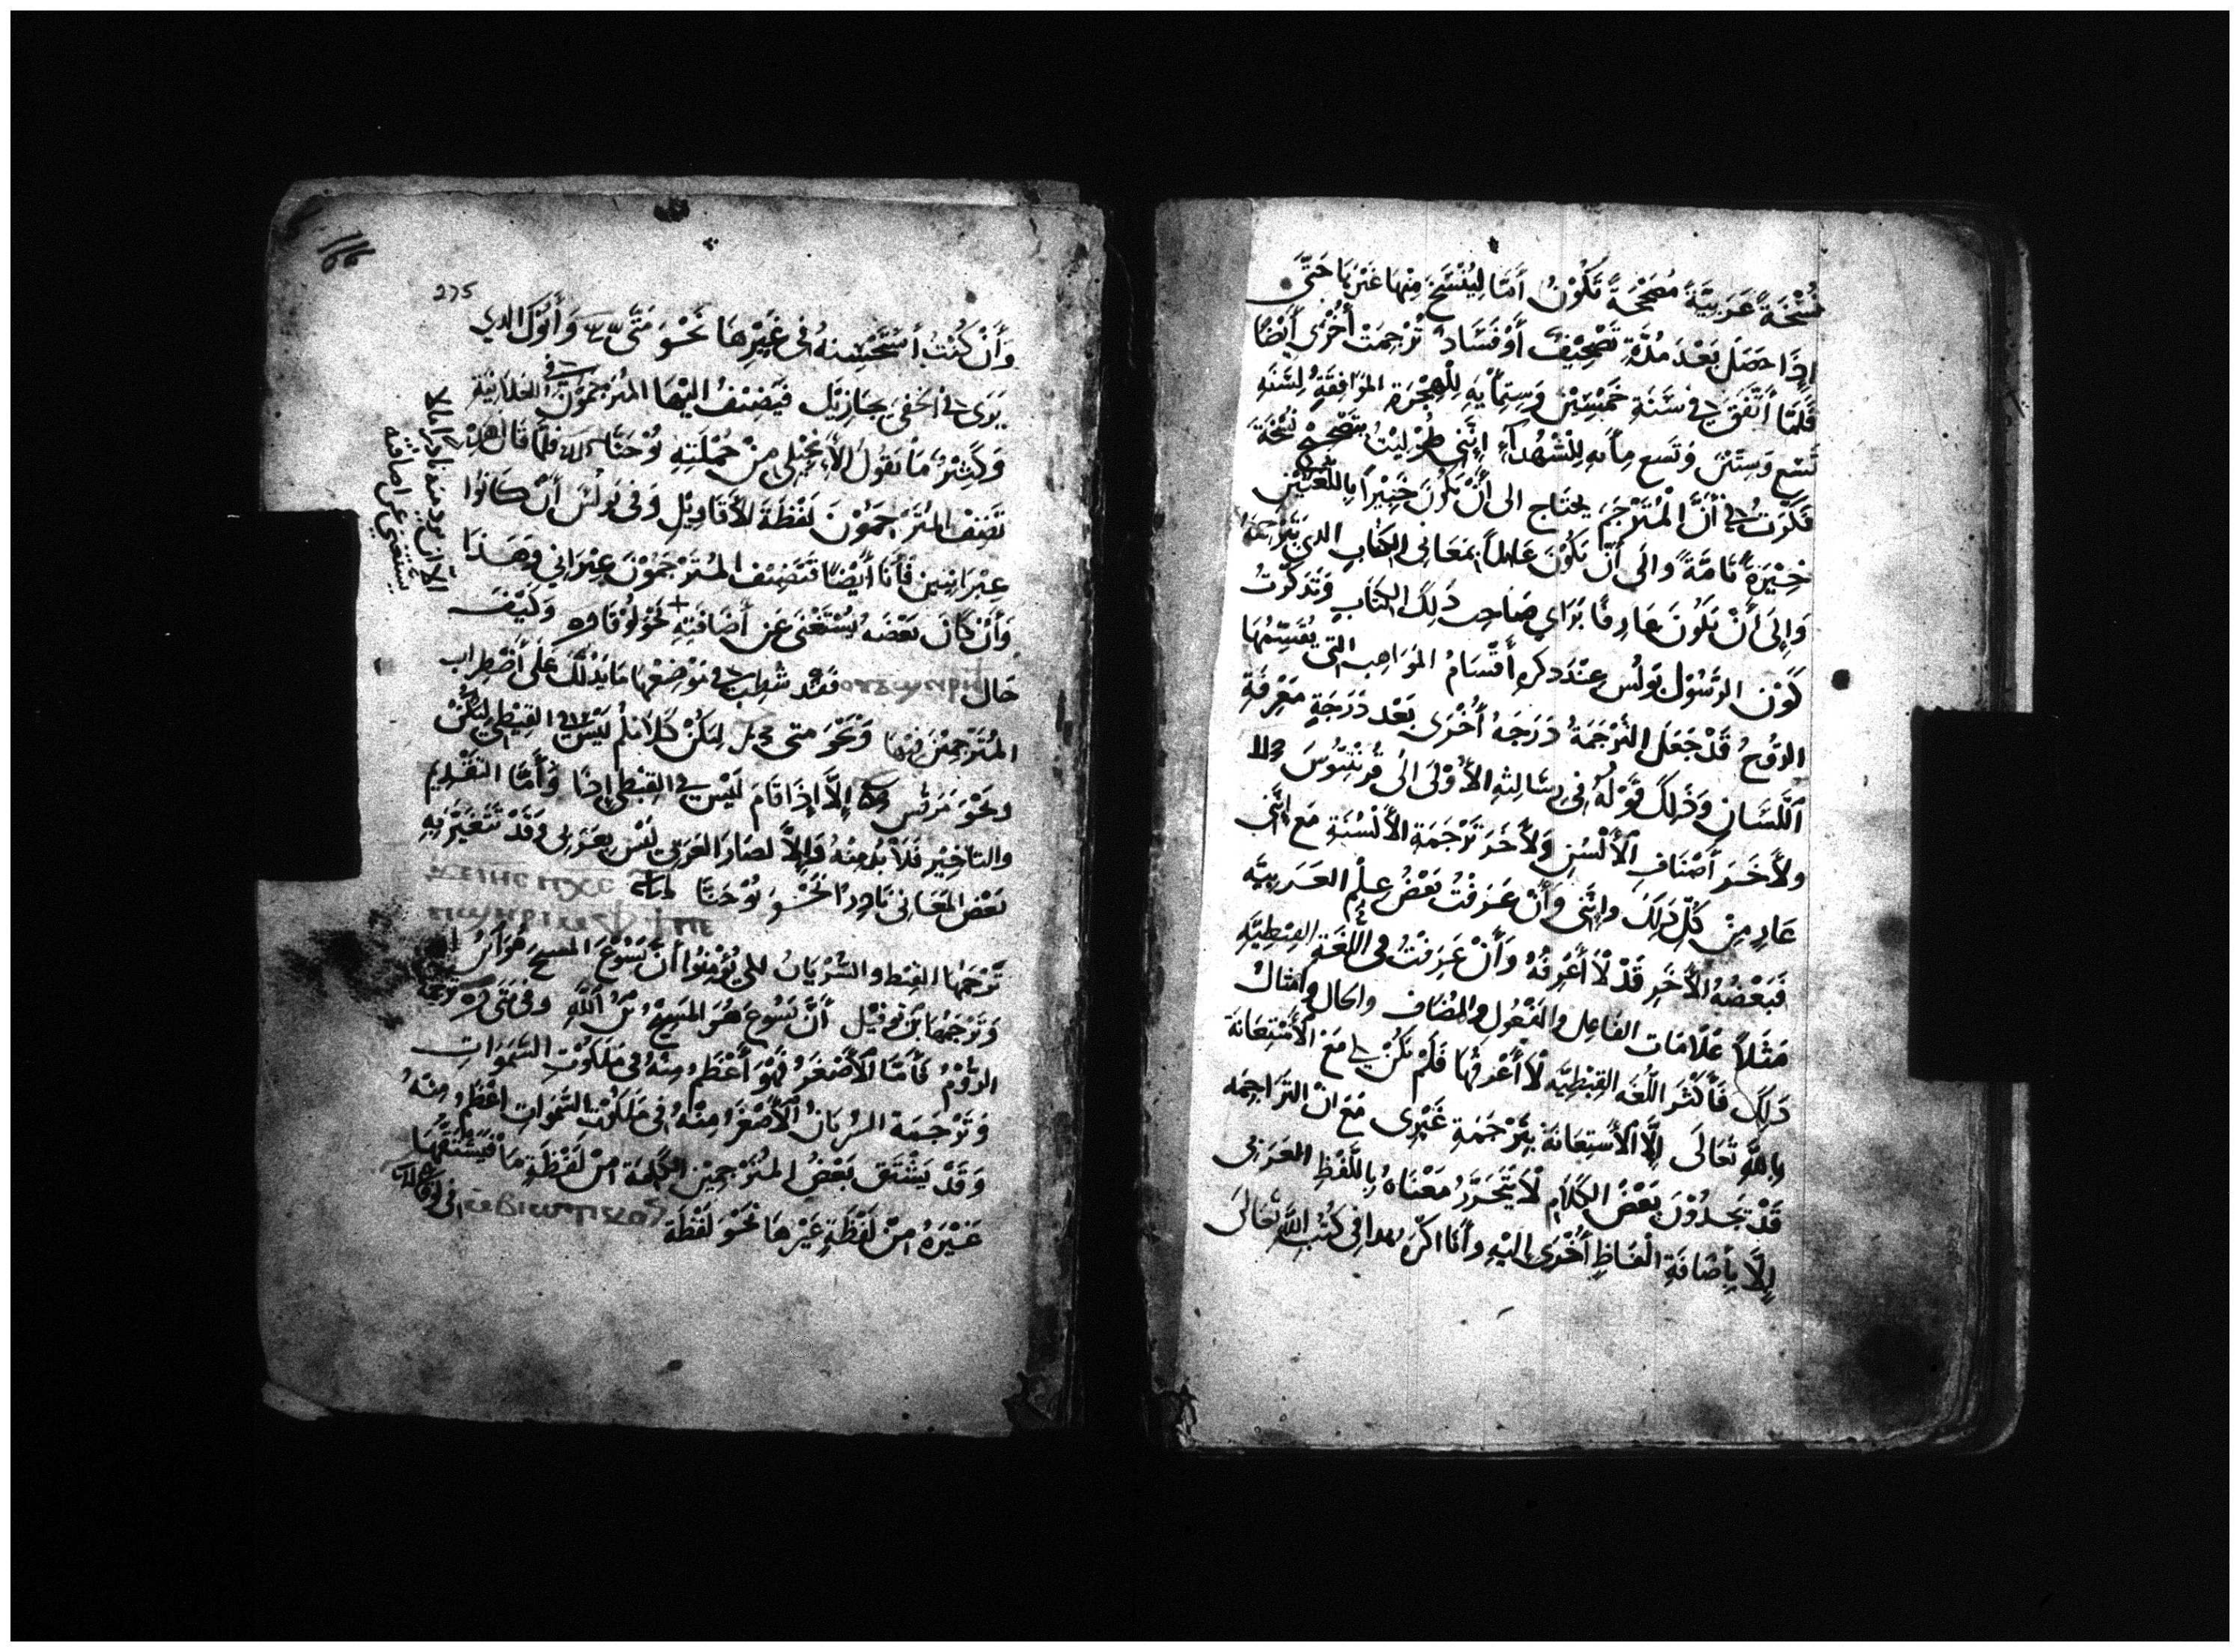 نُسْخَةً عَرَبِيَّةً مُصَحَّحَةً تَكُوْنُ أُمًّا لِيُنْسَخَ مِنْهَا غَيْرُهَا حَتَّى
إِذَا حَصَلَ بَعْدَ مُدَّةٍ تَصْحِيْفٌ أَوْ فَسَادٌ تُرْجِمَتْ أُخْرَى أَيْضًا
فَلَمَّا اتَّفَقَ لِي فِي سَنَةِ خَمْسِيْنَ وَسِتِّمِأْيَةٍ لِلْهِجْرَةِ المُوَافِقَةُ لِسَنَةِ
تِسْعٍ وَسِتِّيْنَ وَتِسعِ مِأَيهٍ لِلشُّهَدَآءِ إِنَّنِي طُوْلِبْتُ بِتَصْحِيْحِ نُسْخَةٍ
فَكَّرْتُ فِي أَنَّ الْمُتَرْجِمَ يحتَاج الى أَنْ يَكُوْنَ خَبِيْراً بِاللُّغَتَيْنِ
خِبْرَةً تَامَّةً وَالَى أَنْ يَكُوْنَ عَالِماً بِمَعَانِى الكِتَابِ الدي يُتَرْجِمُهُ
وَإِلَى أَنْ يَكُوْنَ عَارِفًا بِرَاي صَاحِبِ دَلِكَ الكِتَابِ وَتَدَكَّرْتُ
كَوْن الرَّسُوْلِ بَوْلُس عِنْدَ دكرِهِ أَقْسَامُ المَوَاهِبِ التِي يُقَسِّمُهَا
الرُّوْحُ قَدْ جَعَلَ التَّرْجَمَةُ دَرَجَةً أُخْرَى بَعْد دَرَجَةِ مَعْرِفَةِ
اللِّسَانِ وَذَلِكَ قَوْلُهُ فِي رِسَالِتِهِ الأُوْلَى الَى قُرنْتِيُوْسَ
وِلأَخَرَ أَصْنَافِ الأَلْسُنِ وَلأَخَرَ تَرْجَمَةِ الأَلْسُنَةِ مَعَ إِنَّنِي
عَارٍ مِنْ كُلِّ دَلِكَ وإِنَّنِي وَأَنْ عَرَفْتُ بَعْضُ عِلْمِ العَرَبِيَّهِ
فَبَعْضُهُ الأَخَرِ قَدْ لاَ أَعْرِفُهُ وَأَنْ عَرَفْتُ فِي اللُّغَةِ القِبْطِيَّهِ
مَثَلاً عَلاَمَات الفَاعِلِ والمَفْعُولِ والمُضَاف والحَال وأَمثَالُ
دَلِكَ فَأَكْثَر اللُّغَهِ القِبْطِيَّهِ لاَ أَعْرِفُهَا فَلَمْ يَكُنْ لِي مَعَ الأَسْتِعَانَةِ
بِاللَّهِ تَعَالَى إِلَّا الأَسْتِعَانَةَ بِتَرْجَمَةِ غَيْرِى مَعَ انَّ التَرَاجِمَه
قَدْ يَجِدُوْنَ بَعْضُ الكَلاَمِ لاَ يَتَحَرَّرُ مَعْنَاهُ بِاللَّفْظِ العَرَبِى
إِلَّا بِأَضَافَةِ الْفَاظٍ أُخْرَى إِلَيْهِ وأَنَا اكْرَه هدا فِي كُتُبِ اللَّهِ تَعَالَى
275
وَأَنْ كُنْتُ أَسْتَحْسِنهُ فى غَيْرِهَا نَحْوَ مَتَّى وَأَبُوْكَ الدي
يَرَى فِي الخَفِي يُجَازِيْكَ فَيُضِيْفُ اليْهَا المُتَرْجِمُوْنَ فِي العَلاَنِيَّةِ
وَكَثِيْرٌ مَا يَقُولُ الأَنْجِيْلِى مِنْ جُمْلَتِهِ يُوْحَنَّا فَلمَّا قَالَ هَذِهِ
تَضِيْفُ المُتَرْجِمُوْنَ لَفْظَةَ الأَقَاوِيْل وَفِي بَوْلُسَ أَنْ كَانُوا
عِبْرَانِيين فَأَنَا أَيْضًا فَتَضِيْف المُتَرْجِمُوْنَ عِبْرَانِي وَهَذَا
وَأَنْ كَانَ بَعْضَهُ يُسْتَغْنَى عَن أَضَافَتِهِ + نَحْوَ لُوْقَا وَكَيْفَ
حَال فَقَد فِي مَوْضِعهَا مَا يَدُلُّكَ عَلَى أَضْطِرَاب
المُتَرْجِمِيْنَ فِيْهَا وَنَحْوَ متى لِيَكُنْ كَلاَمَكُم لَيْسَ فِي القِبْطِي لِيَكُنْ
ونَحْوَ مَرْقُس إِلَّا إِذَا قَامَ لَيْسَ فِي القِبْطِي إِذَا وَأَمَّا التَقْدِيم
والتَاخِيْر فَلاَ بُدَّ مِنْهُ وَإِلاَّ لصَارَ العَرَبِى لَيْسَ بِعَرَبِى وَقَدْ تَتَغَيَّرُ بِهِ
بَعْضُ المَعَانِى نَحْوَ يُوْحَنَّا
تَرْجَمَهَا القِبْط والسُّرْيَانُ لِكَي يُؤْمِنُوا أَنَّ يَسُوْعَ المسيحَ هُوَ ابْنُ
وَتَرْجَمَهَا بْن تُوْفِيْل أَنَّ يَسُوْع هُوَ المَسِيْحُ بْنُ اللَّهِ وَفِي مَتَى
الرُّوْمُ فَأَمَّا الأَصْغَرُ فَهُوَ أَعْظَمُ مِنْهُ فِي مَلَكُوْتِ السَّمَوَاتِ
وَتَرْجَمَة السُّرْيَانُ الأَصْغَرُ مِنْهُ فِي مَلَكُوْتِ السَّمَوَاتِ اعْظَمُ مِنْهُ
وَقَدْ يَشْتَق بَعْضُ المُتَرْجِمِيْنَ الكَلِمَةَ مِنْ لَفْظَةٍ مَا فَيَشْتَقُّهَا
غَيْرَهُ مِنْ لَفْظَةٍ غَيْرِهَا نَحْوَ لَفْظَةَ